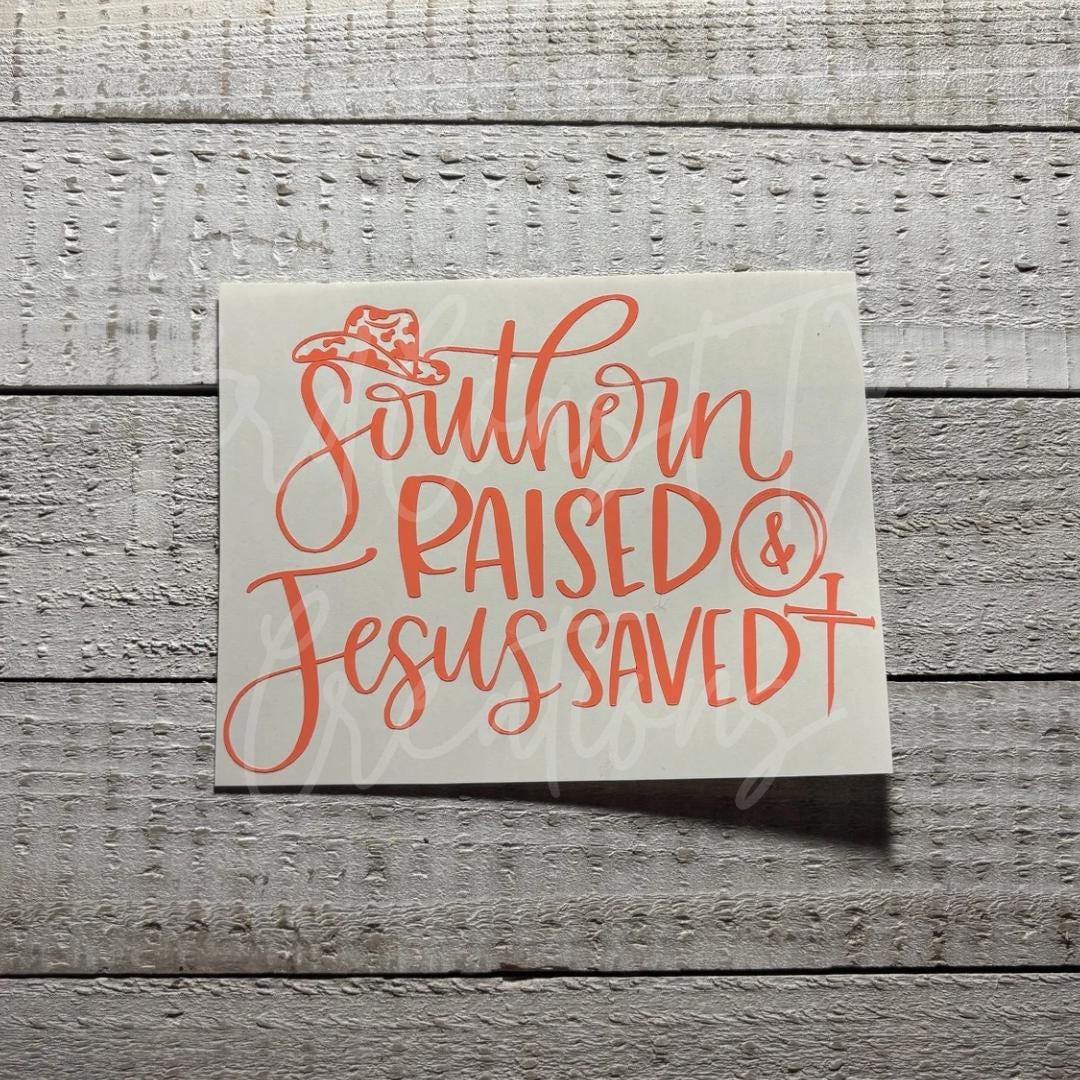 Southern
RAISED &
Jesus SAVED
Creations